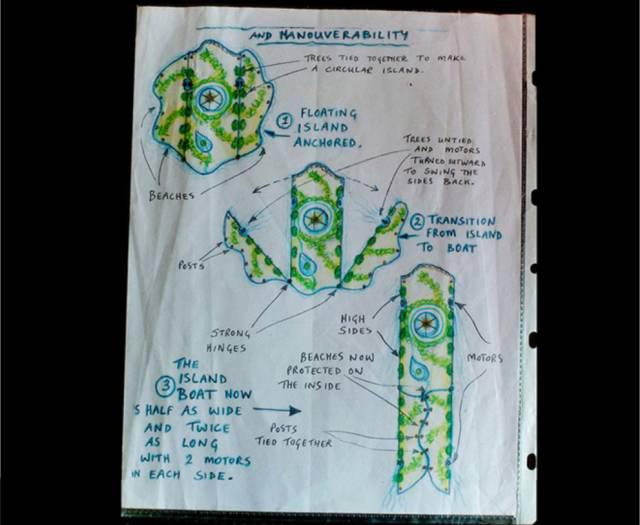 AND MANOUVERABILITY
TREES TIED TOGETHER TO MAKE
A CIRCULAR ISLAND.
① FLOATING
ISLAND
ANCHORED.
BEACHES
TREES UNTIED
AND MOTORS
TURNED OUTWARD
TO SWING THE
SIDES BACK.
② TRANSITION
FROM ISLAND
TO BOAT
POSTS
STRONG
HINGES
HIGH
SIDES
MOTORS
BEACHES NOW
PROTECTED ON
THE INSIDE
THE
ISLAND
③ BOAT NOW
S HALF AS WIDE
AND TWICE
AS LONG
WITH 2 MOTORS
IN EACH SIDE.
POSTS
TIED TOGETHER